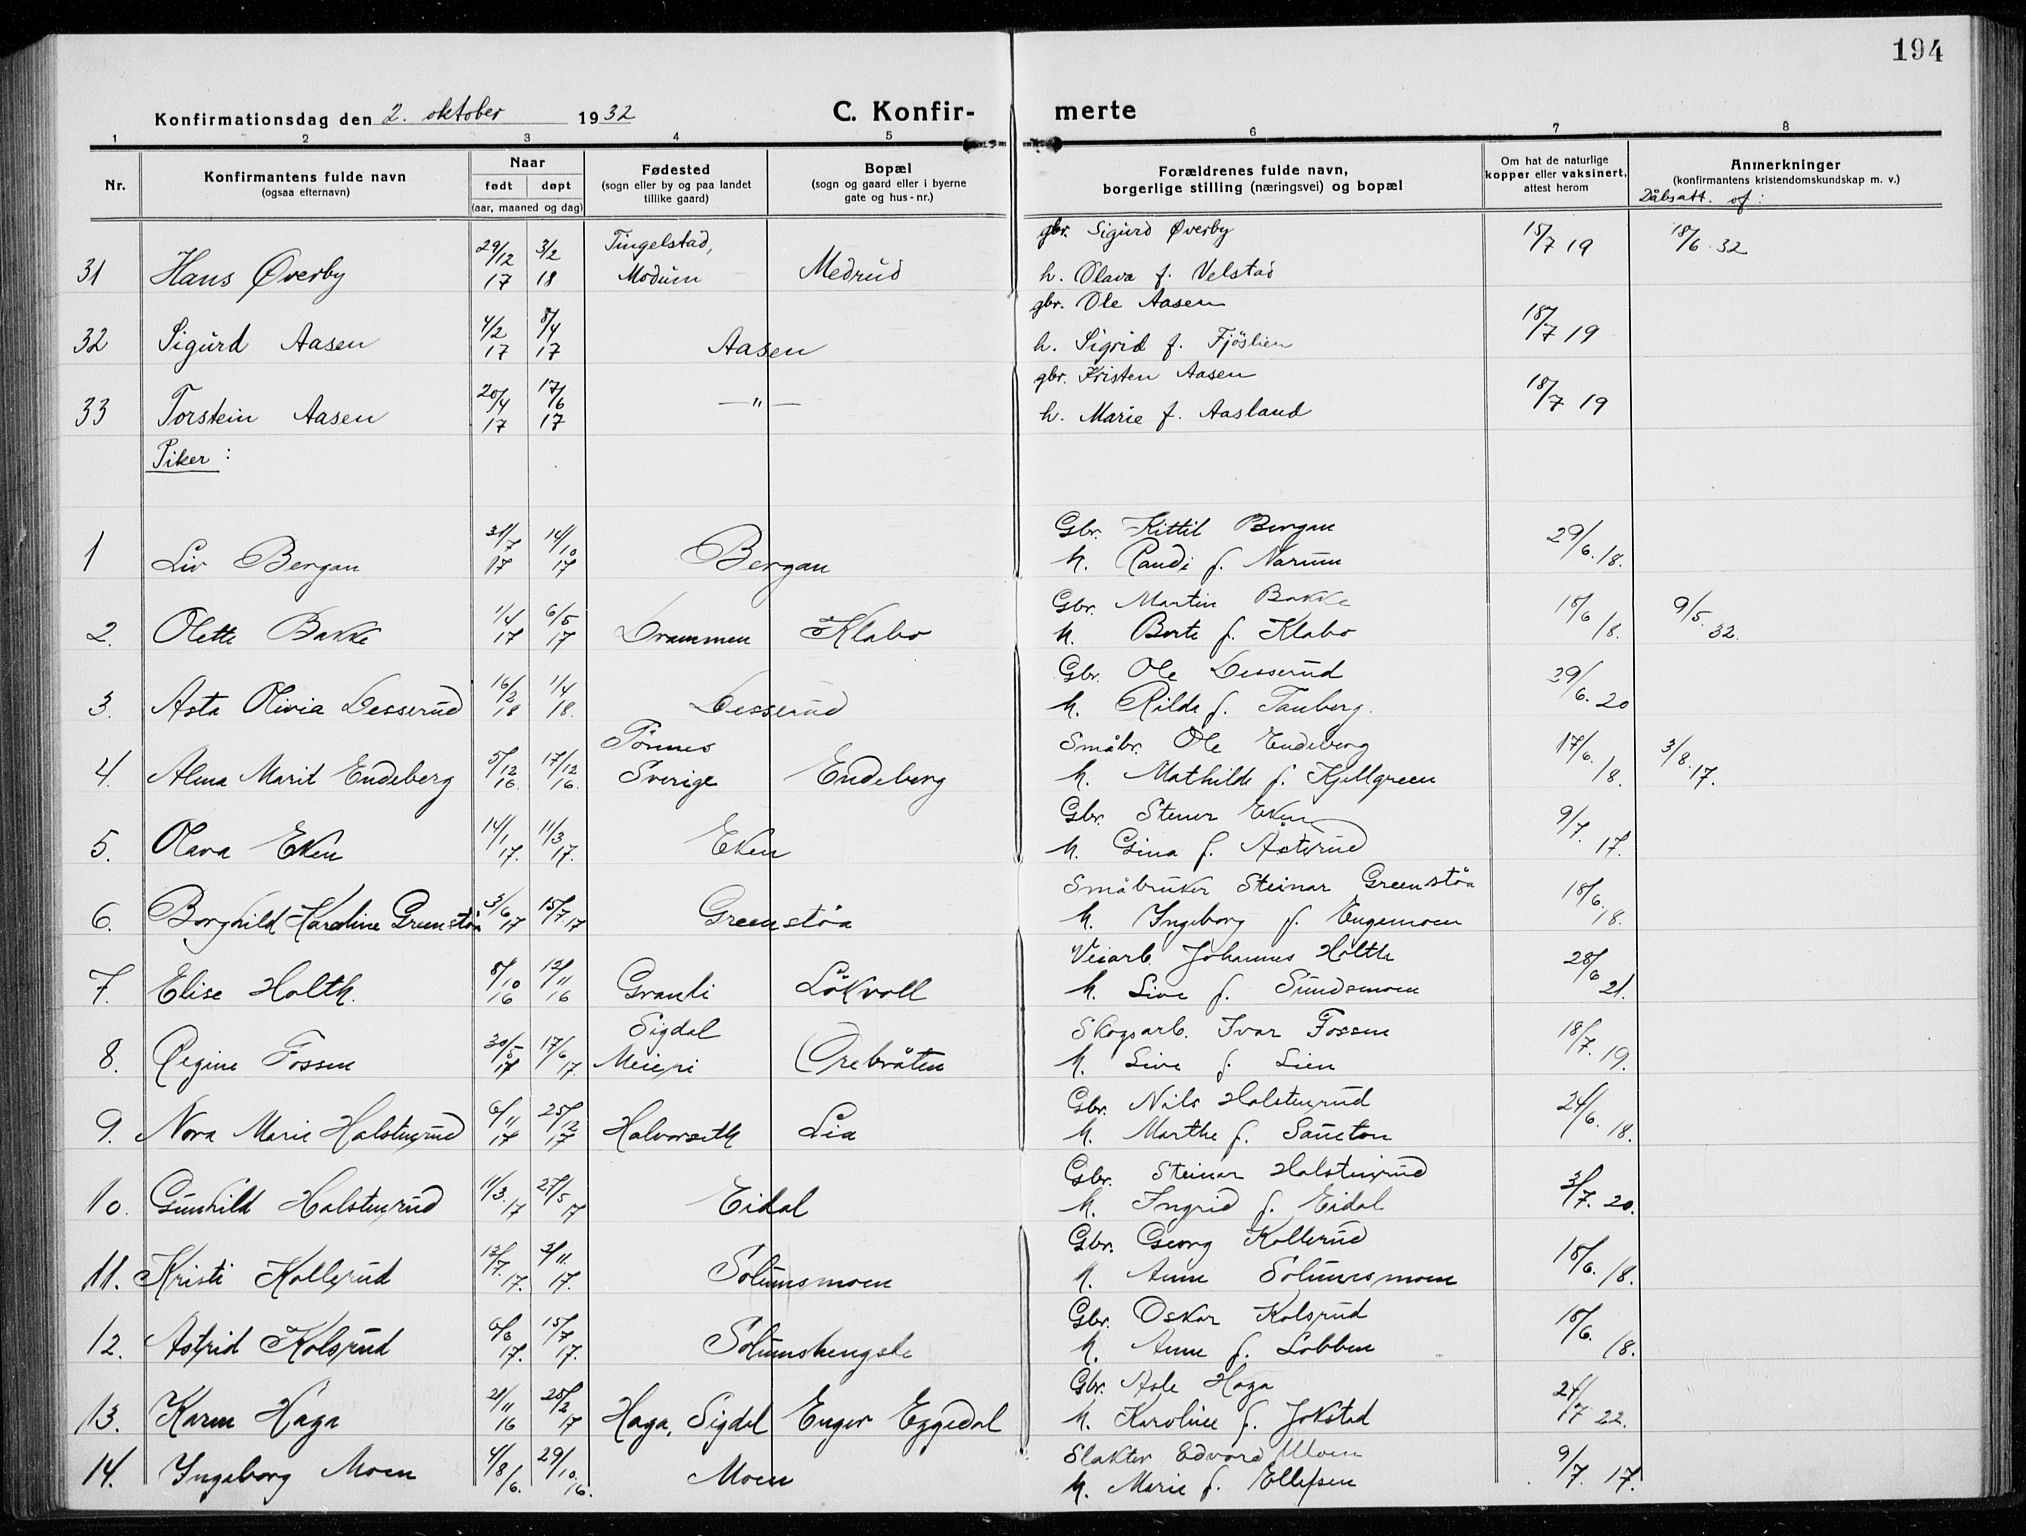 194
Konfirmationsdag den 2. oktober 1932
C. Konfir- merte
1 2 3 4 5 6 7 8
Nr.
Konfirmantens fulde navn
(ogsaa efternavn)
Naar
født døpt
(aar, maaned og dag)
Fødested
(sogn eller by og paa landet
tillike gaard)
Bopæl
(sogn og gaard eller i byerne
gate og hus-nr.)
Forældrenes fulde navn,
borgerlige stilling (næringsvei) og bopæl
Om hat de naturlige
kopper eller vaksinert,
attest herom
Anmerkninger
(konfirmantens kristendomskundskap m. v.)
Dåbsatt. af:
31 Hans Øverby 29/12 17 3/2 18 Tingelstad, Modum Medrud
gbr. Sigurd Øverby 15/7 19 18/6 32
h. Olava f. Velstad
32 Sigurd Aasen 4/2 17 8/4 17 Aasen
gbr. Ole Aasen 18/7 19
h. Sigrid f. Fjöslien
33 Torstein Aasen 20/4 17 17/6 17 — " —
gbr. Kristen Aasen 18/7 19
h. Marie f. Aasland
Piker:
1 Liv Bergan 31/7 17 14/10 17 Bergan
Gbr. Kittil Bergan 29/6. 18.
h. Randi f. Narum
2. Olette Bakke 1/4 17 6/5 17 Drammen Klabo
Gbr. Martin Bakke 18/6 18. 9/5. 32.
h. Berte f. Klabo
3. Asta Olivia Desserud 16/2 18 1/4 18. Desserud
Gbr. Ole Desserud 29/6. 20
h. Rilde f. Tauberg.
4. Alma Marit Endeberg 5/12 16. 17/12 16. Tönnes Sverige Endeberg
Småbr. Ole Endeberg 17/6. 18. 3/8. 17.
h. Mathilde f. Kjellgreen
5. Olava Eken 14/1 17. 11/3 17. Eken
Gbr. Stener Eken 9/7. 17.
h. Gina f. Åsterud
6. Borghild Karoline Grenstöa 3/6 17 15/7 17 Greenstöa
Småbruker Steinar Greenstöa 18/6. 18.
h. Ingeborg f. Engemoen
7. Elise Holth. 8/10 16 12/11 16 Granli Lökvoll
Veiarb. Johannes Holth 28/6 21.
h. Live f. Sundsmoen
8. Regine Fossen 30/5 17 17/6 17. Sigdal Meieri Orebråten
Skogsarb. Ivar Fossen 18/7. 19.
h. Live f. Lien
9. Nora Marie Halstenrud 6/11 17 25/12 17 Halvorseth Lia
Gbr. Nils Halstenrud 24/6. 18.
h. Marthe f. Saueton
10. Gunhild Halstenrud 11/3. 17 27/5 17 Eidal
Gbr. Steinar Halstenrud 3/7. 20.
h. Ingrid f. Eidal
11. Kristi Kollerud 13/7. 17. 3/11. 17. Solumsmoen
Gbr. Georg Kollerud 18/6. 18.
h. Anne Solumsmoen
12. Astrid Kolsrud 6/6 17. 15/7 17. Solumshengsle
Gbr. Oskar Kolsrud 18/6. 18.
h. Anne f. Lobben
13. Karen Haga 21/11 16 25/2 17 Haga, Sigdal Enger Eggedal
Gbr. Asle Haga 24/7 22.
h. Karoline f. Jokstad
14. Ingeborg Moen 4/8 16. 29/10 16. Moen
Slakter Edvard Moen 9/7. 17.
h. Marie f. Ellefsen